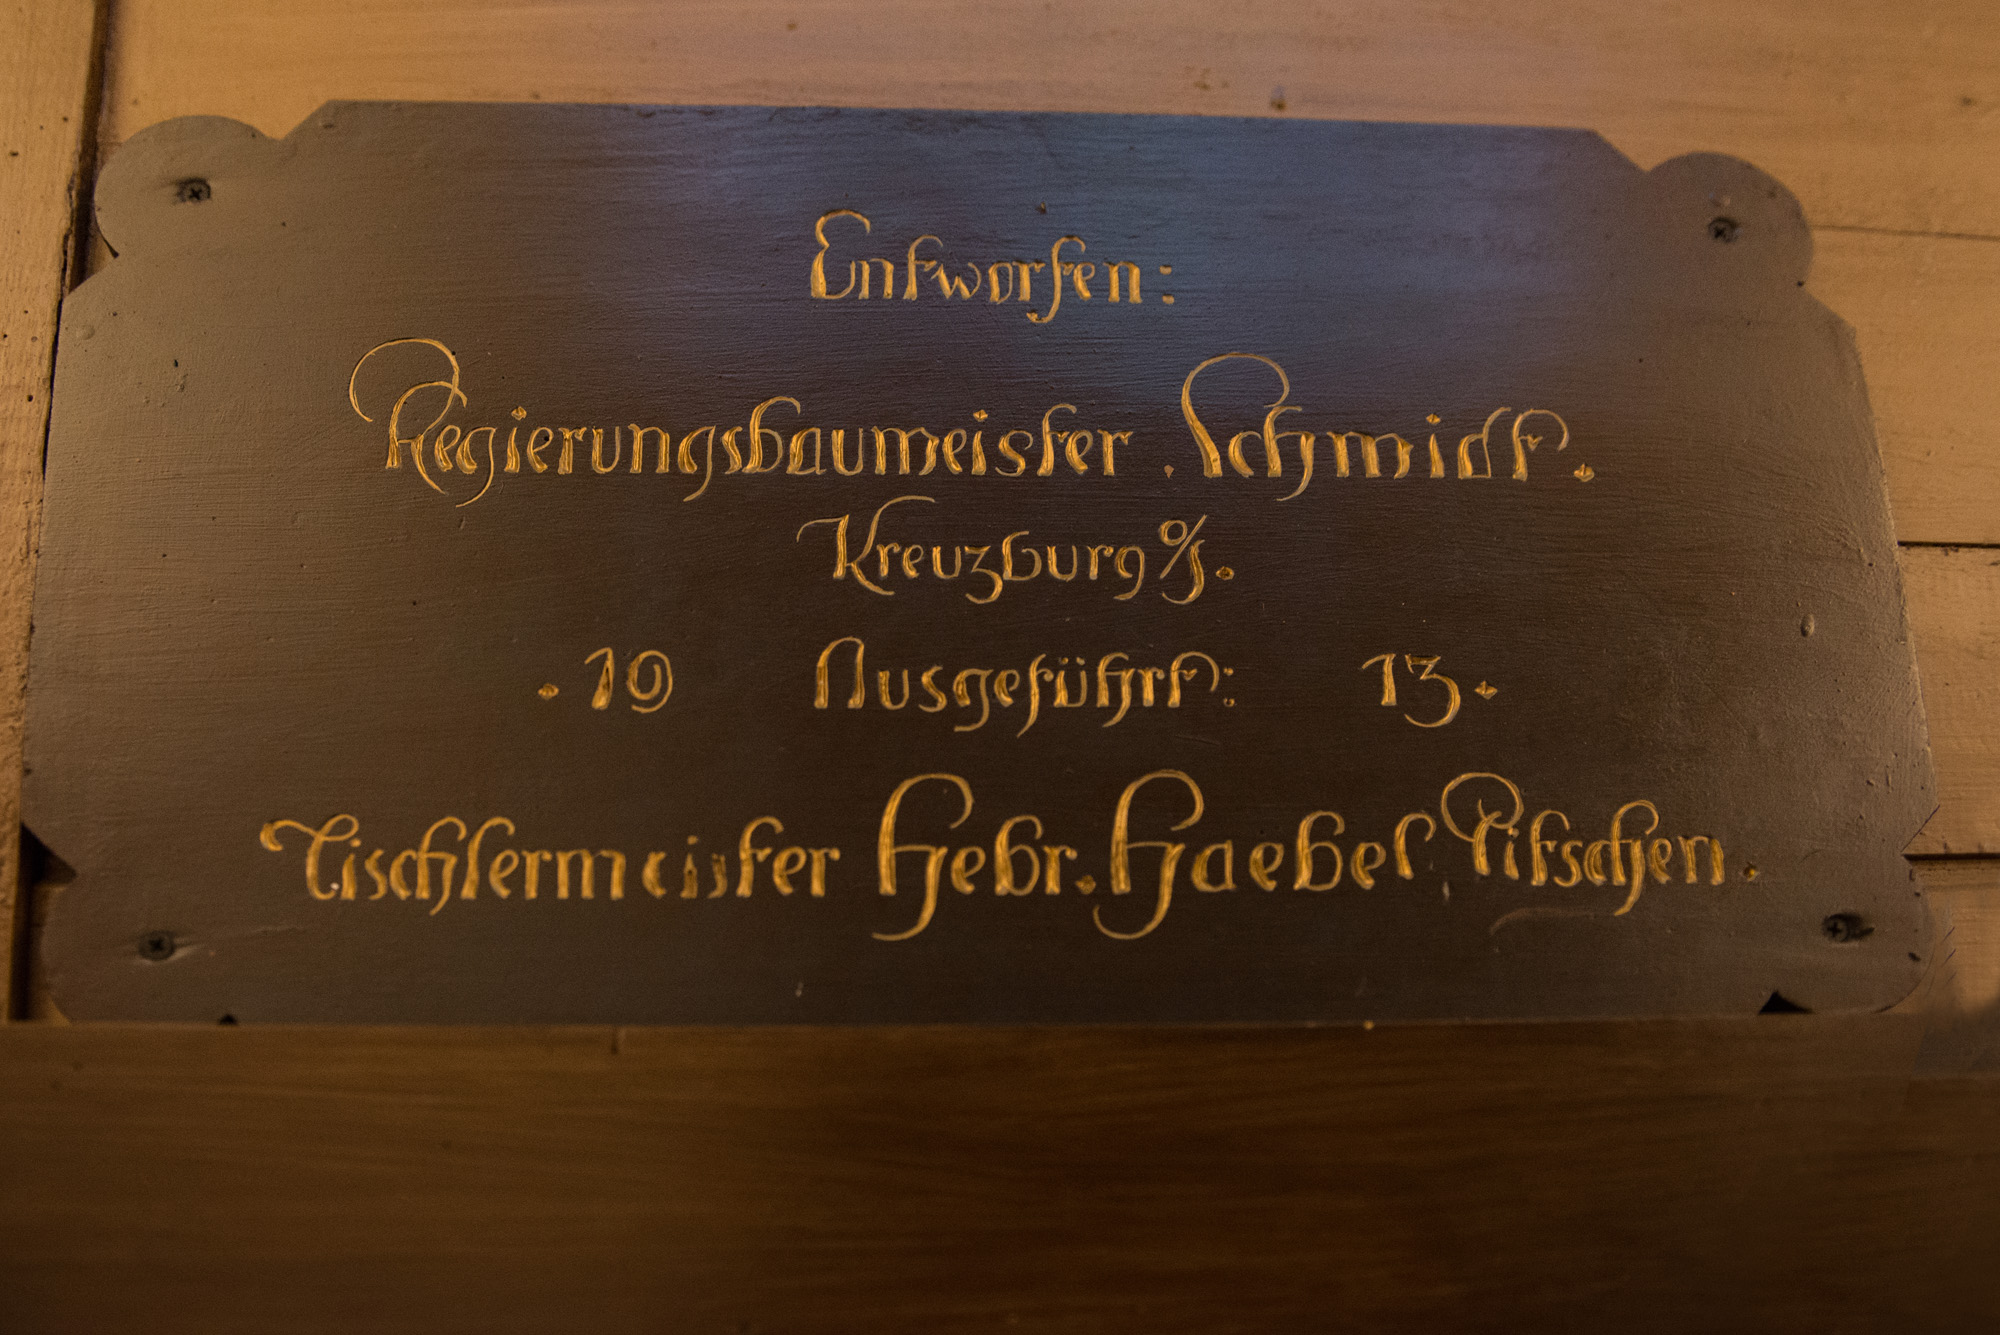 Entworfen:
Regierungsbaumeister . Schmidt.
Kreuzburg o/s.
. 19 Ausgeführt: 13 .
Tischlermeister Gebr. Haebel, Pitschen.